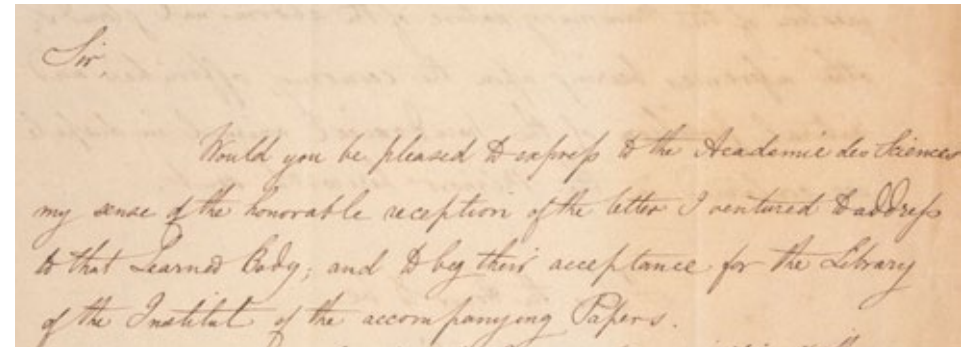 Sir,
Would you be pleased to express to the Academie des Sciences
my sense of the honorable reception of the letter I ventured to address
to that Learned Body; and to beg their acceptance for the Library
of the Institut of the accompanying Papers.